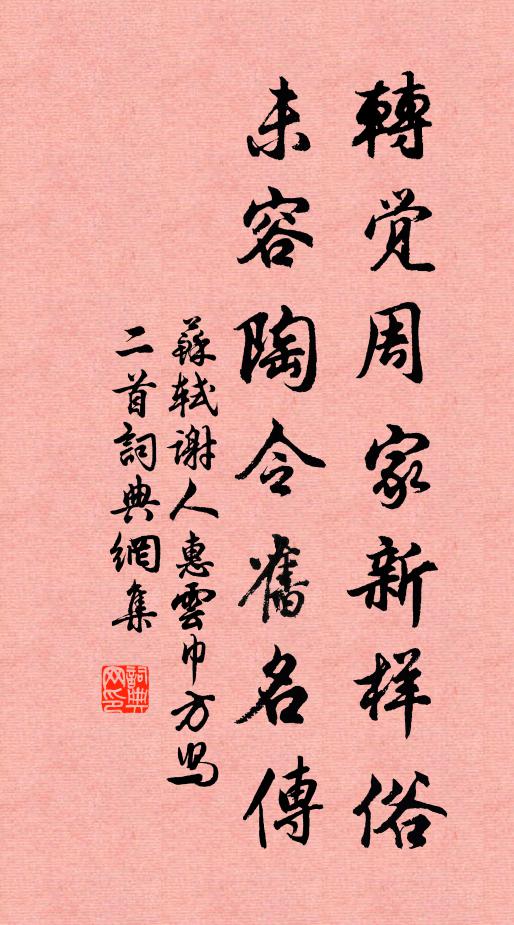 轉覺周家新样俗
未容陶令舊名傳
蘇軾謝人惠雲巾方舄
二首詞典網集
詞典
网印